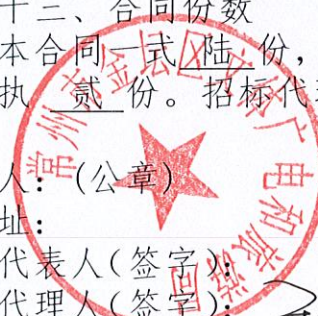 十三、合同份数
本合同一式 陆 份，
执 贰 份。招标代
人：(公章)
址：
代表人(签字)：
代理人(签字)：
常州市金坛区文体广电和旅游局